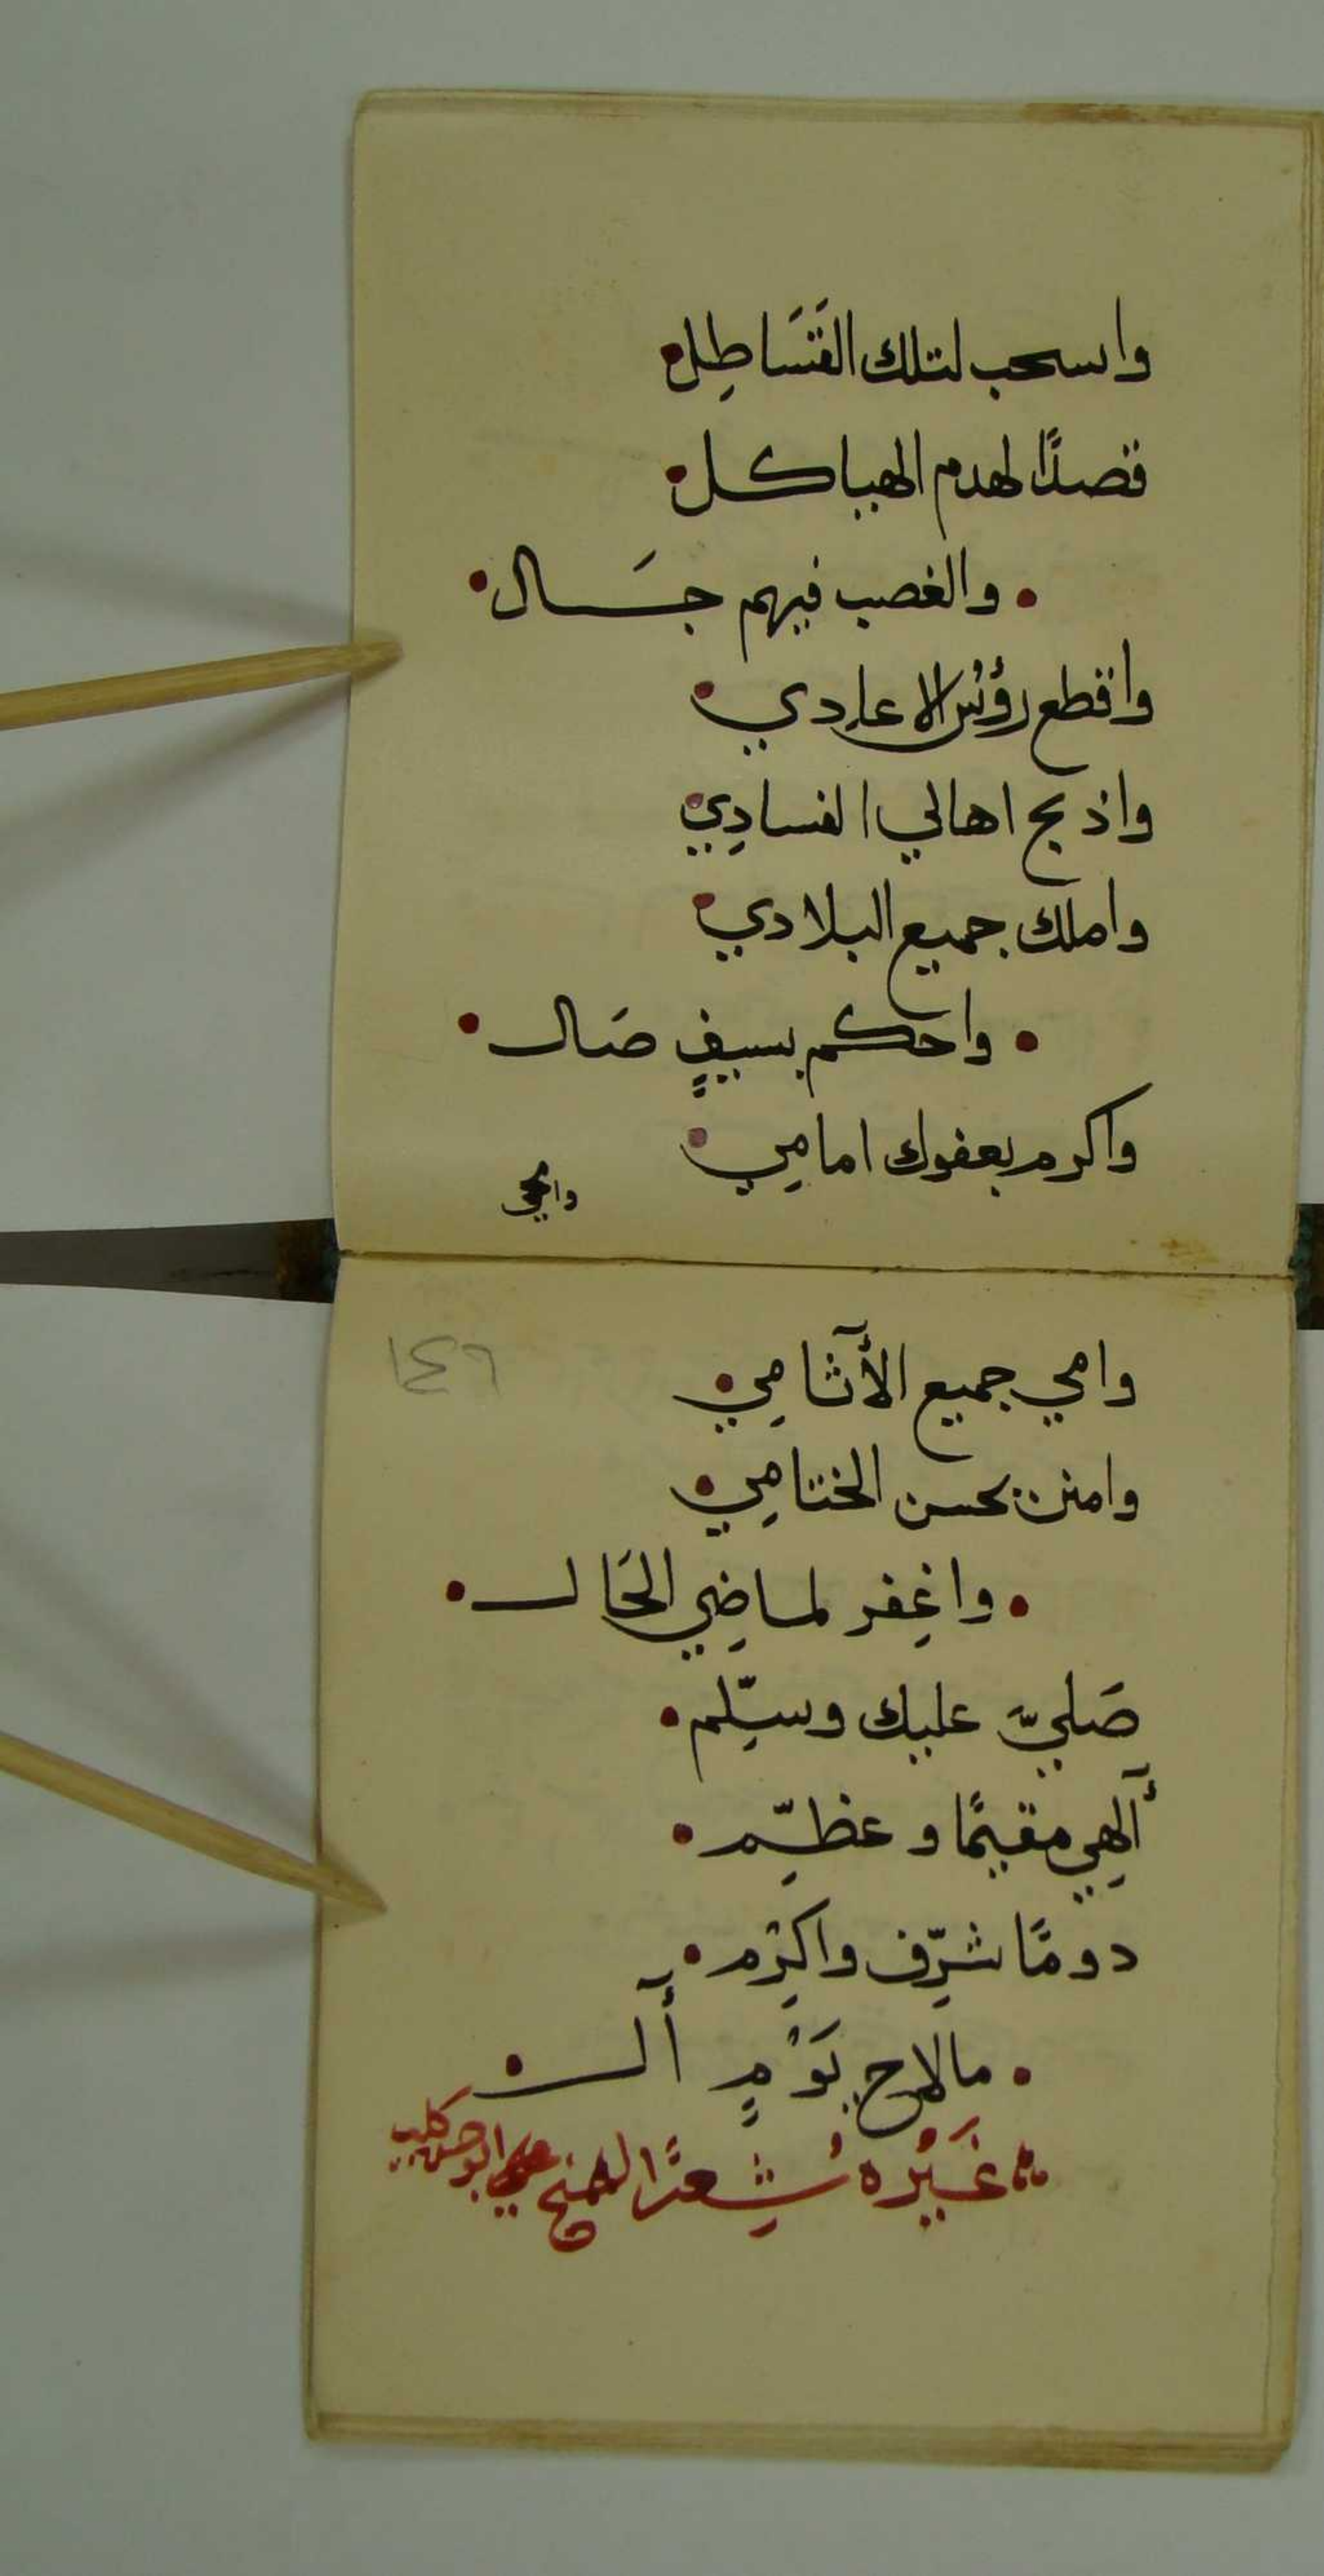 واسحب لتلك القَسَاطِل
قصدًا لهدم الهياكل
والغصب فيهم جَال
واقطع رؤُس الاعادِدي
واذبح اهالي الفسادِي
واملك جميع البلادي
واحكم بسيفٍ صَال
واكرم بعفوك امامِي
وامحي
وامحي جميع الأثامِي
١٤٦
وامنن بحسن الختامِي
واغِفر لماضِي الحَال
صَليّ عليك وسلِّم
آلهِي مقيمًا وعظِّم
دومًا شرِّف واكرِم
مالاح يَوْمٍ أل
غَيْره شِعرًا للشيخ علي ابو حسن كليب